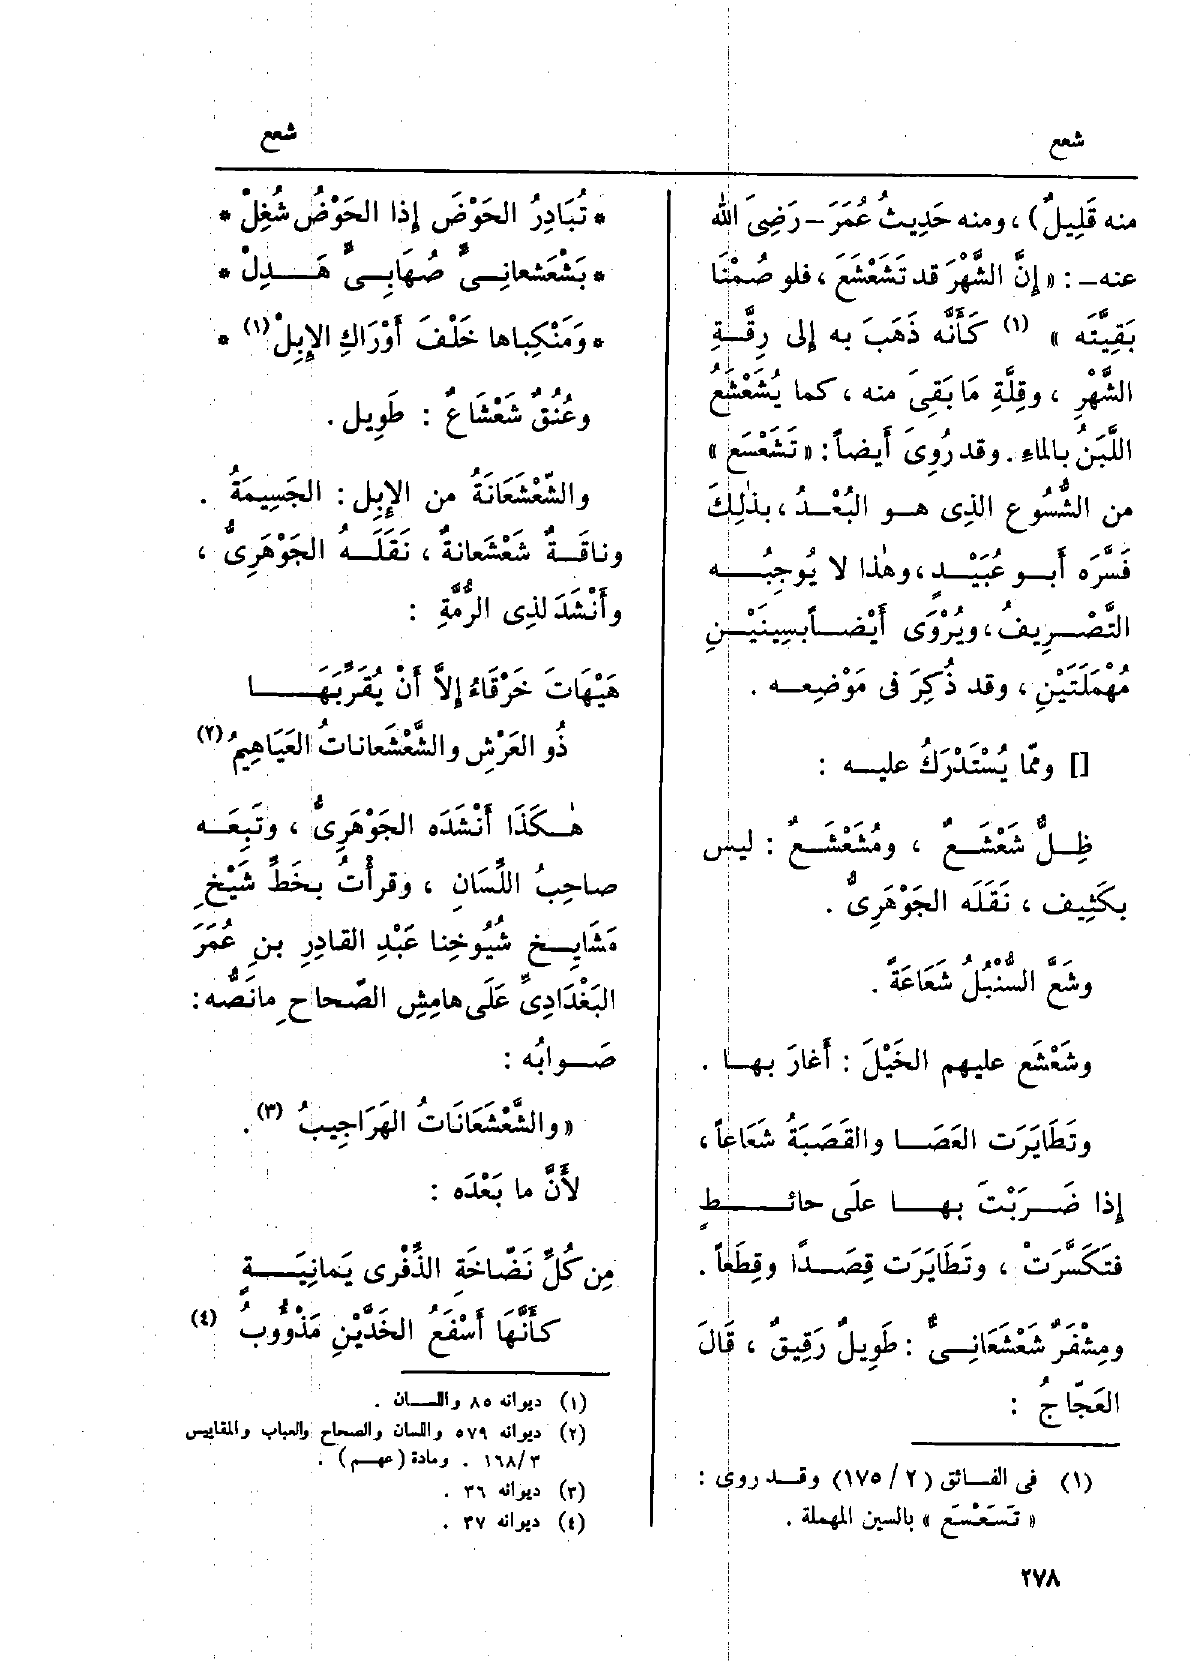 شعع
شعع
منه قَلِيلٌ) ، ومنه حَدِيثُ عُمَرَ – رَضِىَ الله
عنه – : « إِنَّ الشَّهْرَ قد تَشَعْشَعَ ، فلو صُمْنَا
بَقِيَّتَه » (١) كَأَنَّه ذَهَبَ به إِلى رِقَّةِ
الشَّهْرِ ، وقِلَّةِ مَا بَقِىَ منه ، كما يُشَعْشَعُ
اللَّبَنُ بالماءِ . وقد رُوِىَ أَيضاً : « تَشَعْسَع »
من الشُّسُوعِ الذِى هو البُعْدُ ، بذٰلِكَ
فَسَّرَه أَبو عُبَيْدٍ ، وهٰذا لا يُوجِبُه
التَّصْرِيفُ ، ويُرْوَى أَيْضاً بسِينَيْنِ
مُهْمَلَتَيْنِ ، وقد ذُكِرَ فى مَوْضِعه .
[] وممّا يُسْتَدْرَكُ عليه :
ظِلٌّ شَعْشَعٌ ، ومُشَعْشَعٌ : ليس
بكَثِيف ، نَقَلَه الجَوْهَرِىُّ .
وشَعَّ السُّنْبُلُ شَعَاعَةً .
وشَعْشَع عليهم الخَيْلَ : أَغارَ بها .
وتَطَايَرَت العَصَا والقَصَبَةُ شَعَاعاً ،
إِذا ضَرَبْتَ بها علَى حائطٍ
فتَكَسَّرَتْ ، وتَطَايَرَت قِصَدًا وقِطَعاً .
ومِشْفَرٌ شَعْشَعَانِىٌّ : طَوِيلٌ رَقِيقٌ ، قَالَ
العَجّاجُ :
(١) فى الفائق (٢ / ١٧٥) وقد روى :
« تَسَعْسَعَ » بالسين المهملة .
* تُبَادِرُ الحَوْضَ إِذا الحَوْضُ شُغِلْ *
* بشَعْشَعانِىٍّ صُهَابِىٍّ هَدِلْ *
* وَمَنْكِباها خَلْفَ أَوْرَاكِ الإِبِلْ (١) *
وعُنُقٌ شَعْشَاعٌ : طَوِيل .
والشَّعْشَعَانَةُ من الإِبِل : الجَسِيمَةُ .
وناقَةٌ شَعْشَعانةٌ ، نَقَلَه الجَوْهَرِىُّ ،
وأَنْشَدَ لذِى الرُّمَّةِ :
هَيْهَاتَ خَرْقَاءُ إِلاَّ أَنْ يُقَرِّبَهَا
ذُو العَرْشِ والشَّعْشَعاناتُ العَيَاهِيمُ (٢)
هٰكَذَا أَنْشَدَه الجَوْهَرِىُّ ، وتَبِعَه
صاحِبُ اللِّسَانِ ، وقرأْتُ بخَطِّ شَيْخِ
مَشَايِخِ شُيُوخِنا عَبْدِ القادِرِ بنِ عُمَرَ
البَغْدَادِىِّ عَلَى هامِشِ الصّحاحِ مانَصُّه :
صَوابُه :
« والشَّعْشَعَانَاتُ الهَرَاجِيبُ (٣) .
لأَنَّ ما بَعْدَه :
مِن كُلِّ نَضَّاخَةِ الذِّفْرَى يَمانِيَةٍ
كأَنَّهَا أَسْفَعُ الخَدَّيْنِ مَذْؤُوبُ (٤)
(١) ديوانه ٨٥ واللسان .
(٢) ديوانه ٥٧٩ واللسان والصحاح والعباب والمقاييس
٣/١٦٨ . ومادة (عهم) .
(٣) ديوانه ٣٦ .
(٤) ديوانه ٣٧ .
٢٧٨